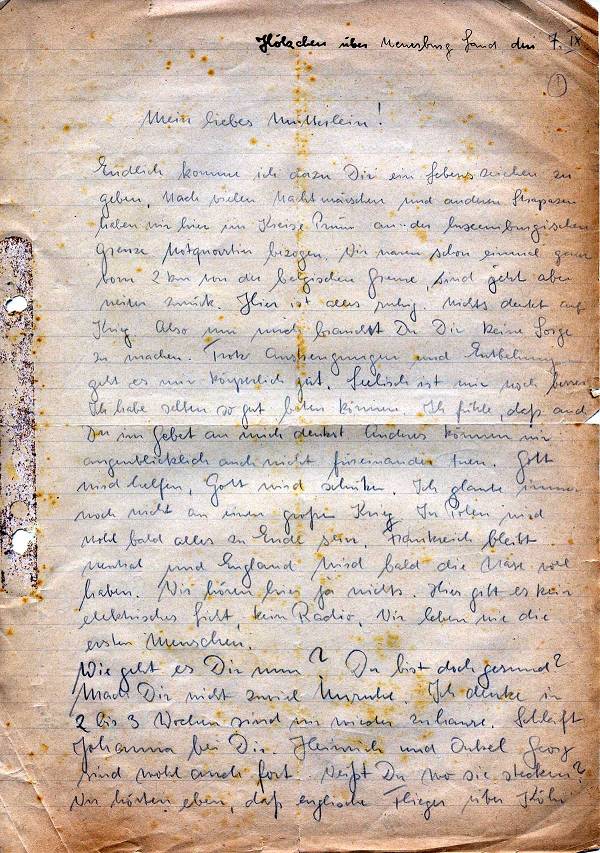 Hölzchen über Neuerburg Land den 7. IX
1
Mein liebes Mutterlein!
Endlich komme ich dazu Dir ein Lebenszeichen zu
geben. Nach vielen Nachtmärschen und anderen Strapazen
haben wir hier im Kreise Prüm an der luxemburgischen
Grenze Notquartier bezogen. Wir waren schon einmal ganz
vorn 2 km von der belgischen Grenze, sind jetzt aber
weiter zurück. Hier ist alles ruhig. Nichts deutet auf
Krieg. Also um mich brauchst Du Dir keine Sorge
zu machen. Trotz Anstrengungen und Entbehrungen
geht es mir körperlich gut. Seelisch ist mir noch besser.
Ich habe selten so gut beten können. Ich fühle, daß auch
Du im Gebet an mich denkst. Anderes können wir
augenblicklich auch nicht füreinander tuen. Gott
wird helfen, Gott wird schützen. Ich glaube immer
noch nicht an einen großen Krieg. In Polen wird
wohl bald alles zu Ende sein. Frankreich bleibt
neutral und England wird bald die Nase voll
haben. Wir hören hier ja nichts. Hier gibt es kein
elektrisches Licht, kein Radio. Wir leben wie die
ersten Menschen.
Wie geht es Dir nun? Du bist doch gesund?
Mach Dir nicht zuviel Unruhe. Ich denke in
2 bis 3 Wochen sind wir wieder zuhause. Schläft
Johanna bei Dir. Heinrich und Onkel Georg
sind wohl auch fort. Weißt Du wo sie stecken?
Wir hörten eben, daß englische Flieger über Köln